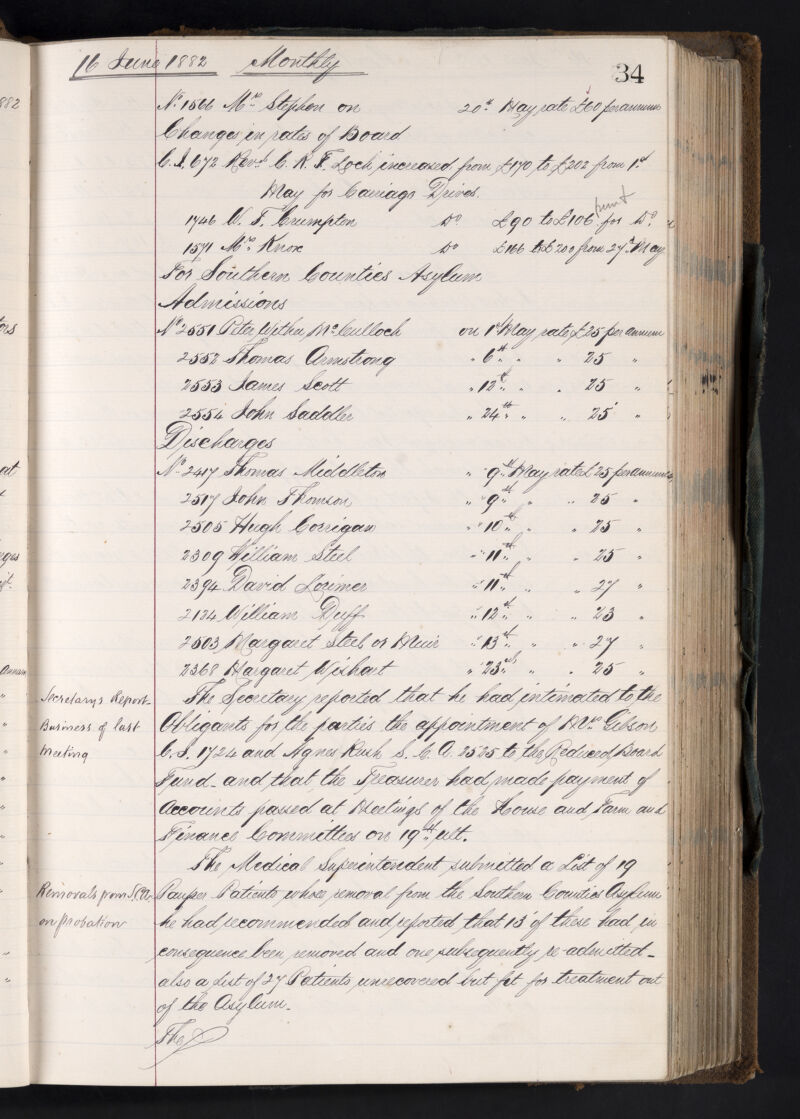 16 June 1882 Monthly
34
No. 1566 Mrs. Stephen on 20th May rate £60 per annum
Changes in rates of Board
C.I. 672 Revd. C. R. F. Loch, increased from £170 to £202 from 1st
May for Carriage Drives.
1746 A. F. Crumpton Do £90 to £106 for Do.
1571 Mrs. Knox Do £166 to £200 from 27th May
For Southern Counties Asylum
Admissions
No. 2551 Peter Wither McCulloch on 1st May rate £25 per annum
2552 Thomas Armstrong " 6th " " 25 "
2553 James Scott " 12th " " 25 "
2554 John Saddler " 24th " " 25 "
Discharges
No. 2417 Thomas Middleton " 9th May rate £25 per annum
2517 John Thomson " 9th " " 25 "
2505 Hugh Corrigan " 10th " " 25 "
2309 William Steel " 11th " " 25 "
2394 David Lorimer " 11th " " 27 "
2134 William Duff " 12th " " 23 "
2503 Margaret Steel or Muir " 13th " " 27 "
2368 Margaret Wishart " 23rd " " 25 "
Secretarys Report
Business of last
Meeting
The Secretary reported that he had intimated to the
Obligants for the parties the appointment of Mrs. Gibson
C.I. 1724 and Agnes Rush S.C.A. 2525 to the Reduced Board
Fund - and that the Treasurer had made payment of
Accounts passed at Meetings of the House and Farm and
Finance Committees on 19th ult.
The Medical Superintendent submitted a List of 19
Removals from S.C.A.
on probation
Pauper Patients whose removal from the Southern Counties Asylum
he had recommended and reported that 13 of these had in
consequence been removed and one subsequently re-admitted -
also a List of 27 Patients unrecovered but fit for treatment out
of the Asylum.
The